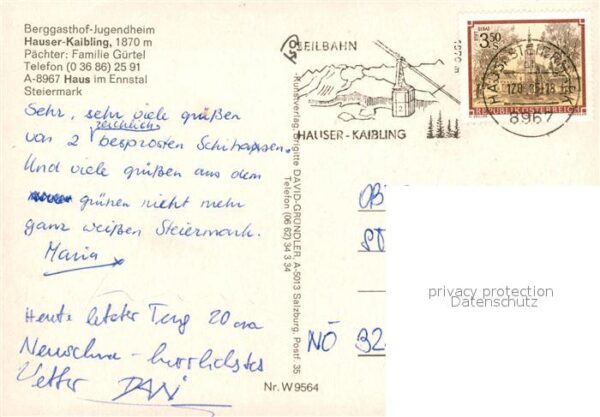 Berggasthof-Jugendheim
Hauser-Kaibling, 1870 m
Pächter: Familie Gürtel
Telefon (0 36 86) 25 91
A-8967 Haus im Ennstal
Steiermark
Sehr, sehr viele grüßen
von 2 reichlich besprosten Schihasen.
Und viele grüßen aus dem
grünen nicht mehr
ganz weißen Steiermark.
Maria
Heute letzter Tag 20 cm
Neuschnee - herrlichstes
Wetter DANI
Nr. W 9564
Kunstverlag Brigitte DAVID-GRÜNDLER, A-5013 Salzburg, Postf. 35
Telefon (06 62) 34 3 34
SEILBAHN
1870 m
HAUSER-KAIBLING
3.50
S
REPUBLIK ÖSTERREICH
HAUS
8967
NÖ
privacy protection
Datenschutz